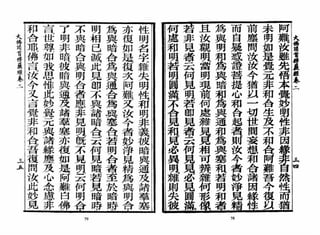 大佛頂首楞嚴經卷二
三四
阿難汝雖先悟本覺妙明性非因緣非自然性而猶
未明如是覺元非和合生及不和合阿難吾今復以
前塵問汝汝今猶以一切世間妄想和合諸因緣性
而自疑惑證菩提心和合起者則汝今者妙淨見精
為與明和為與暗和為與通和為與塞和若明和者
且汝觀明當明現前何處雜見見相可辨雜何形像
若非見者云何見明若即見者云何見見必見圓滿
何處和明若明圓滿不合見和見必異明雜則失彼
78
性明名字雜失明性和明非義彼暗與通及諸羣塞
亦復如是復次阿難又汝今者妙淨見精為與明合
為與暗合為與通合為與塞合若明合者至於暗時
明相已滅此見即不與諸暗合云何見暗若見暗時
不與暗合與明合者應非見明既不見明云何明合
了明非暗彼暗與通及諸羣塞亦復如是阿難白佛
言世尊如我思惟此妙覺元與諸緣塵及心念慮非
和合耶佛言汝今又言覺非和合吾復問汝此妙見
大佛頂首楞嚴經卷二
三五
79